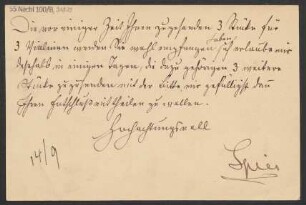 Nachl. 100/8,
Die vor einiger Zeit Ihnen zugesandten 3 Stücke für
3 Stimmen werden Sie wohl empfangen haben, ich erlaube mir
deshalb, in einigen Tagen, die dazu gehörigen 3 weitere
Stücke zuzusenden mit der Bitte mir gefälligst dann
Ihren Entschluß mittheilen zu wollen.
Hochachtungsvoll
14/9
Spies